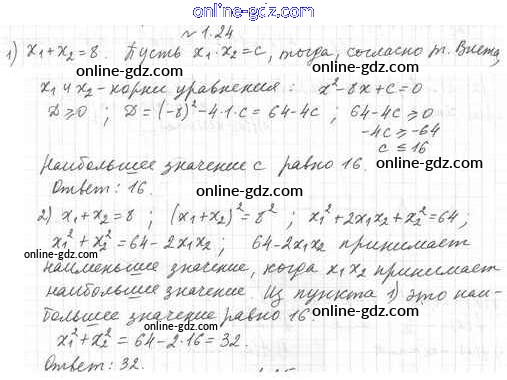 online-gdz.com
№1.24
1) x₁+x₂=8. Пусть x₁·x₂=c, тогда, согласно т. Виета,
online-gdz.com online-gdz.com
x₁ и x₂ - корни уравнения: x²-8x+c=0
D≥0 ; D=(-8)²-4·1·c=64-4c ; 64-4c≥0
-4c≥-64
c≤16
Наибольшее значение c равно 16. online-gdz.com
Ответ: 16. online-gdz.com
2) x₁+x₂=8 ; (x₁+x₂)²=8² ; x₁²+2x₁x₂+x₂²=64;
x₁²+x₂²=64-2x₁x₂ ; 64-2x₁x₂ принимает
online-gdz.com online-gdz.com
наименьшее значение, когда x₁x₂ принимает
наибольшее значение. Из пункта 1) это наи-
большее значение равно 16.
online-gdz.com
x₁²+x₂²=64-2·16=32.
online-gdz.com
Ответ: 32.